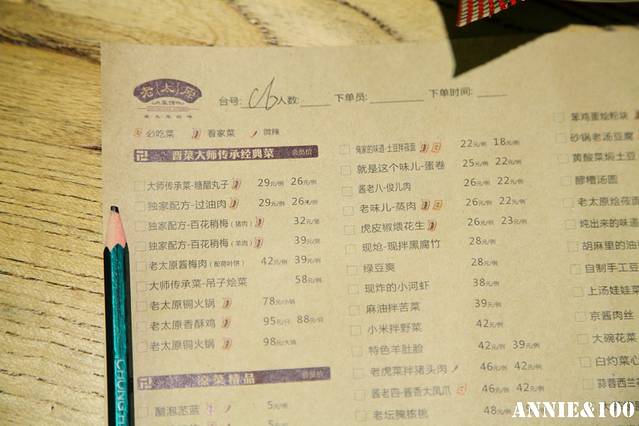 老太原
台号: 人数: 下单员: 下单时间:
必吃菜 看家菜 微辣
晋菜大师传承经典菜 会员价
大师传承菜-糖醋丸子 29元/例 26元/例
独家配方-过油肉 29元/例 26元/例
独家配方-百花稍梅(猪肉) 32元/笼
独家配方-百花稍梅(羊肉) 39元/笼
老太原酱梅肉(配荷叶饼) 42元/例 39元/例
大师传承菜-吊子烩菜 58元/例
老太原铜火锅 78元/小锅
老太原香酥鸡 95元/只 88元/只
老太原铜火锅 98元/大锅
凉菜精品 会员价
醋泡茎蓝 5元/例
5元/例
22元/例 18元/例
就是这个味儿-蛋卷 25元/例 22元/例
酱老八-俊儿肉 26元/例 22元/例
老味儿-蒸肉 26元/例 22元/例
虎皮椒煨花生 26元/例 23元/例
现焰-现拌黑腐竹 28元/例
绿豆爽 28元/例
现炸的小河虾 38元/例
麻油拌苦菜 39元/例
小米拌野菜 42元/例
特色羊肚脸 42元/例 39元/例
老虎菜拌猪头肉 46元/例 42元/例
酱老四-酱香大凤爪 46元/例 42元/例
老坛腌核桃 48元/例
笨鸡蛋烩粉块
砂锅老汤豆腐
黄酸菜焗土豆
醪糟汤圆
老太原烩莜面
炖出来的味道
胡麻油的油
自制手工豆
上汤娃娃菜
京酱肉丝
大碗花菜
白灼菜心
蒜蓉西兰
CHUNG
ANNIE&100